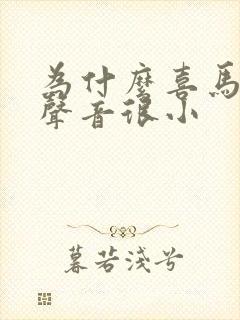 為什麼喜馬
聲音很小
暮若淺兮